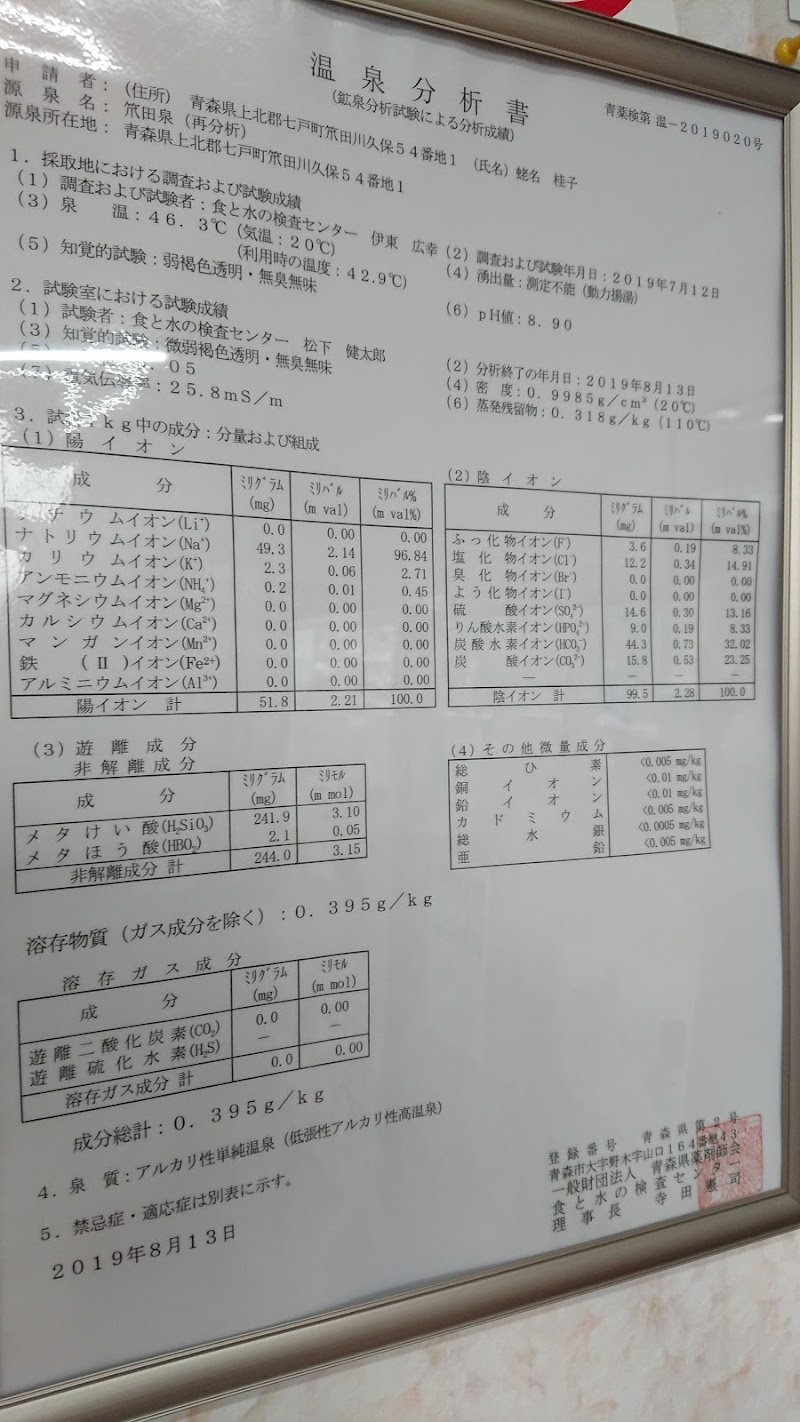 温泉分析書
(鉱泉分析試験による分析成績)
青薬検第 温－２０１９０２０号
申請者：(住所) 青森県上北郡七戸町笊田川久保５４番地１ (氏名) 蛯名 桂子
源泉名：笊田泉（再分析）
源泉所在地：青森県上北郡七戸町笊田川久保５４番地１
１．採取地における調査および試験成績
（１）調査および試験者：食と水の検査センター 伊東 広幸
（２）調査および試験年月日：２０１９年７月１２日
（３）泉 温：４６．３℃（気温：２０℃）
(利用時の温度：４２.９℃)
（４）湧出量：測定不能（動力揚湯）
（５）知覚的試験：弱褐色透明・無臭無味
（６）ｐＨ値：８．９０
２．試験室における試験成績
（１）試験者：食と水の検査センター 松下 健太郎
（２）分析終了の年月日：２０１９年８月１３日
（３）知覚的試験：微弱褐色透明・無臭無味
（４）密 度：０．９９８５ｇ／cm³（２０℃）
０５
（６）蒸発残留物：０．３１８ｇ／ｋｇ（１１０℃）
（７）電気伝導率：２５.８ｍＳ／ｍ
３．試料１ｋｇ中の成分：分量および組成
（１）陽イオン
成分 ﾐﾘｸﾞﾗﾑ(mg) ﾐﾘﾊﾞﾙ(m val) ﾐﾘﾊﾞﾙ%(m val%)
リチウムイオン(Li⁺) 0.0 0.00 0.00
ナトリウムイオン(Na⁺) 49.3 2.14 96.84
カリウムイオン(K⁺) 2.3 0.06 2.71
アンモニウムイオン(NH₄⁺) 0.2 0.01 0.45
マグネシウムイオン(Mg²⁺) 0.0 0.00 0.00
カルシウムイオン(Ca²⁺) 0.0 0.00 0.00
マンガンイオン(Mn²⁺) 0.0 0.00 0.00
鉄(Ⅱ)イオン(Fe²⁺) 0.0 0.00 0.00
アルミニウムイオン(Al³⁺) 0.0 0.00 0.00
陽イオン 計 51.8 2.21 100.0
（２）陰イオン
成分 ﾐﾘｸﾞﾗﾑ(mg) ﾐﾘﾊﾞﾙ(m val) ﾐﾘﾊﾞﾙ%(m val%)
ふっ化物イオン(F⁻) 3.6 0.19 8.33
塩化物イオン(Cl⁻) 12.2 0.34 14.91
臭化物イオン(Br⁻) 0.0 0.00 0.00
よう化物イオン(I⁻) 0.0 0.00 0.00
硫酸イオン(SO₄²⁻) 14.6 0.30 13.16
りん酸水素イオン(HPO₄²⁻) 9.0 0.19 8.33
炭酸水素イオン(HCO₃⁻) 44.3 0.73 32.02
炭酸イオン(CO₃²⁻) 15.8 0.53 23.25
－ － － －
陰イオン 計 99.5 2.28 100.0
（３）遊離成分
非解離成分
成分 ﾐﾘｸﾞﾗﾑ(mg) ﾐﾘﾓﾙ(m mol)
メタけい酸(H₂SiO₃) 241.9 3.10
メタほう酸(HBO₂) 2.1 0.05
非解離成分 計 244.0 3.15
（４）その他微量成分
総ひ素 <0.005 mg/kg
銅イオン <0.01 mg/kg
鉛イオン <0.01 mg/kg
カドミウム <0.005 mg/kg
総水銀 <0.0005 mg/kg
亜鉛 <0.005 mg/kg
溶存物質（ガス成分を除く）：０．３９５ｇ／ｋｇ
溶存ガス成分
成分 ﾐﾘｸﾞﾗﾑ(mg) ﾐﾘﾓﾙ(m mol)
遊離二酸化炭素(CO₂) 0.0 0.00
遊離硫化水素(H₂S) － －
溶存ガス成分 計 0.0 0.00
成分総計：０．３９５ｇ／ｋｇ
４．泉 質：アルカリ性単純温泉（低張性アルカリ性高温泉）
５．禁忌症・適応症は別表に示す。
２０１９年８月１３日
登録番号 青森県第２号
青森市大字野木字山口１６４番地４３
一般財団法人 青森県薬剤師会
食と水の検査センター
理事長 寺田 憲司